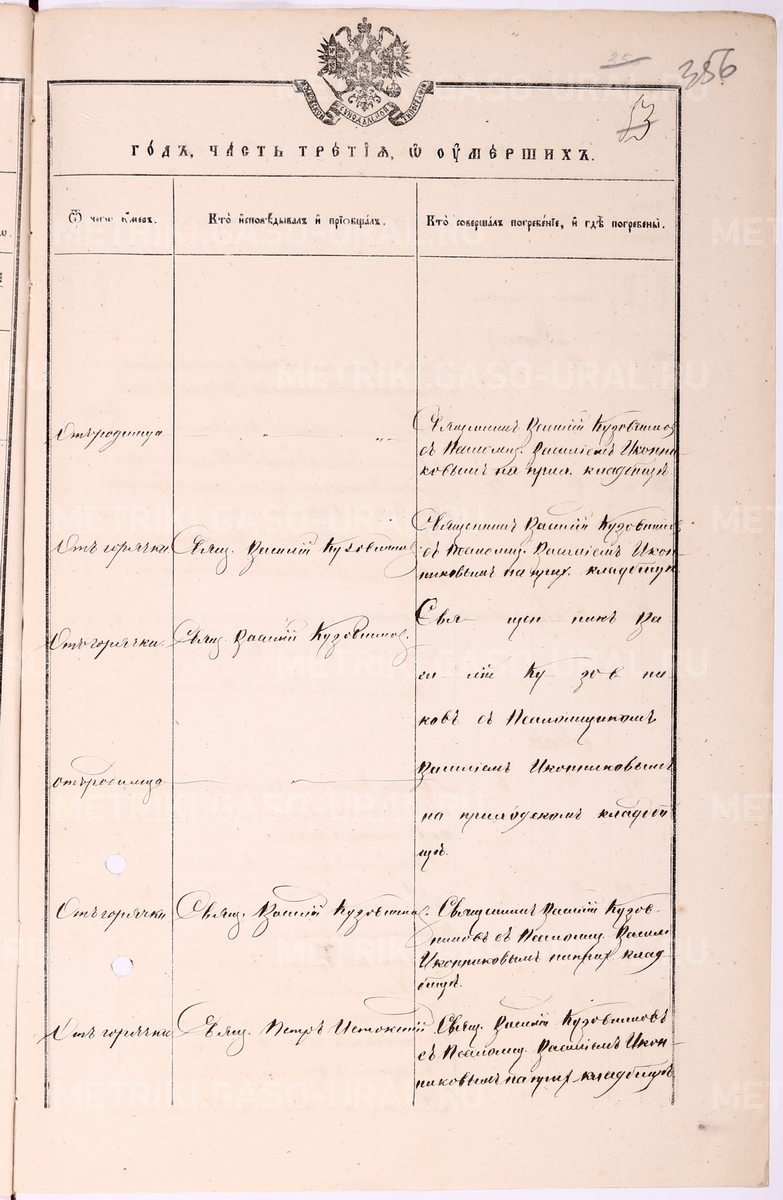 356
25
53
ГО́ДЪ, ЧА́СТЬ ТРЕ́ТІѦ, Ѿ ОУМЕ́РШИХЪ.
Ѿ чегѡ ᲂу҆́меръ.
Кто̀ и҆сповѣ́дывалъ и҆ прїѡбща́лъ.
Кто̀ соверша́лъ погребе́нїе, и҆ гдѣ̀ погребены̀.
Отъ родимца
Священникъ Василій Кузовниковъ
съ Псаломщ. Василіемъ Иконни-
ковымъ на прих. кладбищѣ
Отъ горячки
Свящ. Василій Кузовниковъ
Священникъ Василій Кузовниковъ
съ Псаломщ. Василіемъ Икон-
никовымъ на прих. кладбищѣ
Отъ горячки
Свящ. Василій Кузовниковъ.
Свя- щен никъ Ва-
си лій Ку зов ни
ковъ съ Псаломщикомъ
Василіемъ Иконниковымъ
на приходскомъ кладби
щѣ.
отъ родимца
Отъ горячки
Свящ. Василій Кузовниковъ.
Священникъ Василій Кузов-
никовъ съ Псаломщ. Васил.
Иконниковымъ на прих. клад
бищѣ.
Отъ горячки
Свящ. Петръ
Свящ. Василій Кузовниковъ
съ Псаломщ. Василіемъ Икон-
никовымъ на прих. кладбищѣ
METRIKI.GASO-URAL.RU